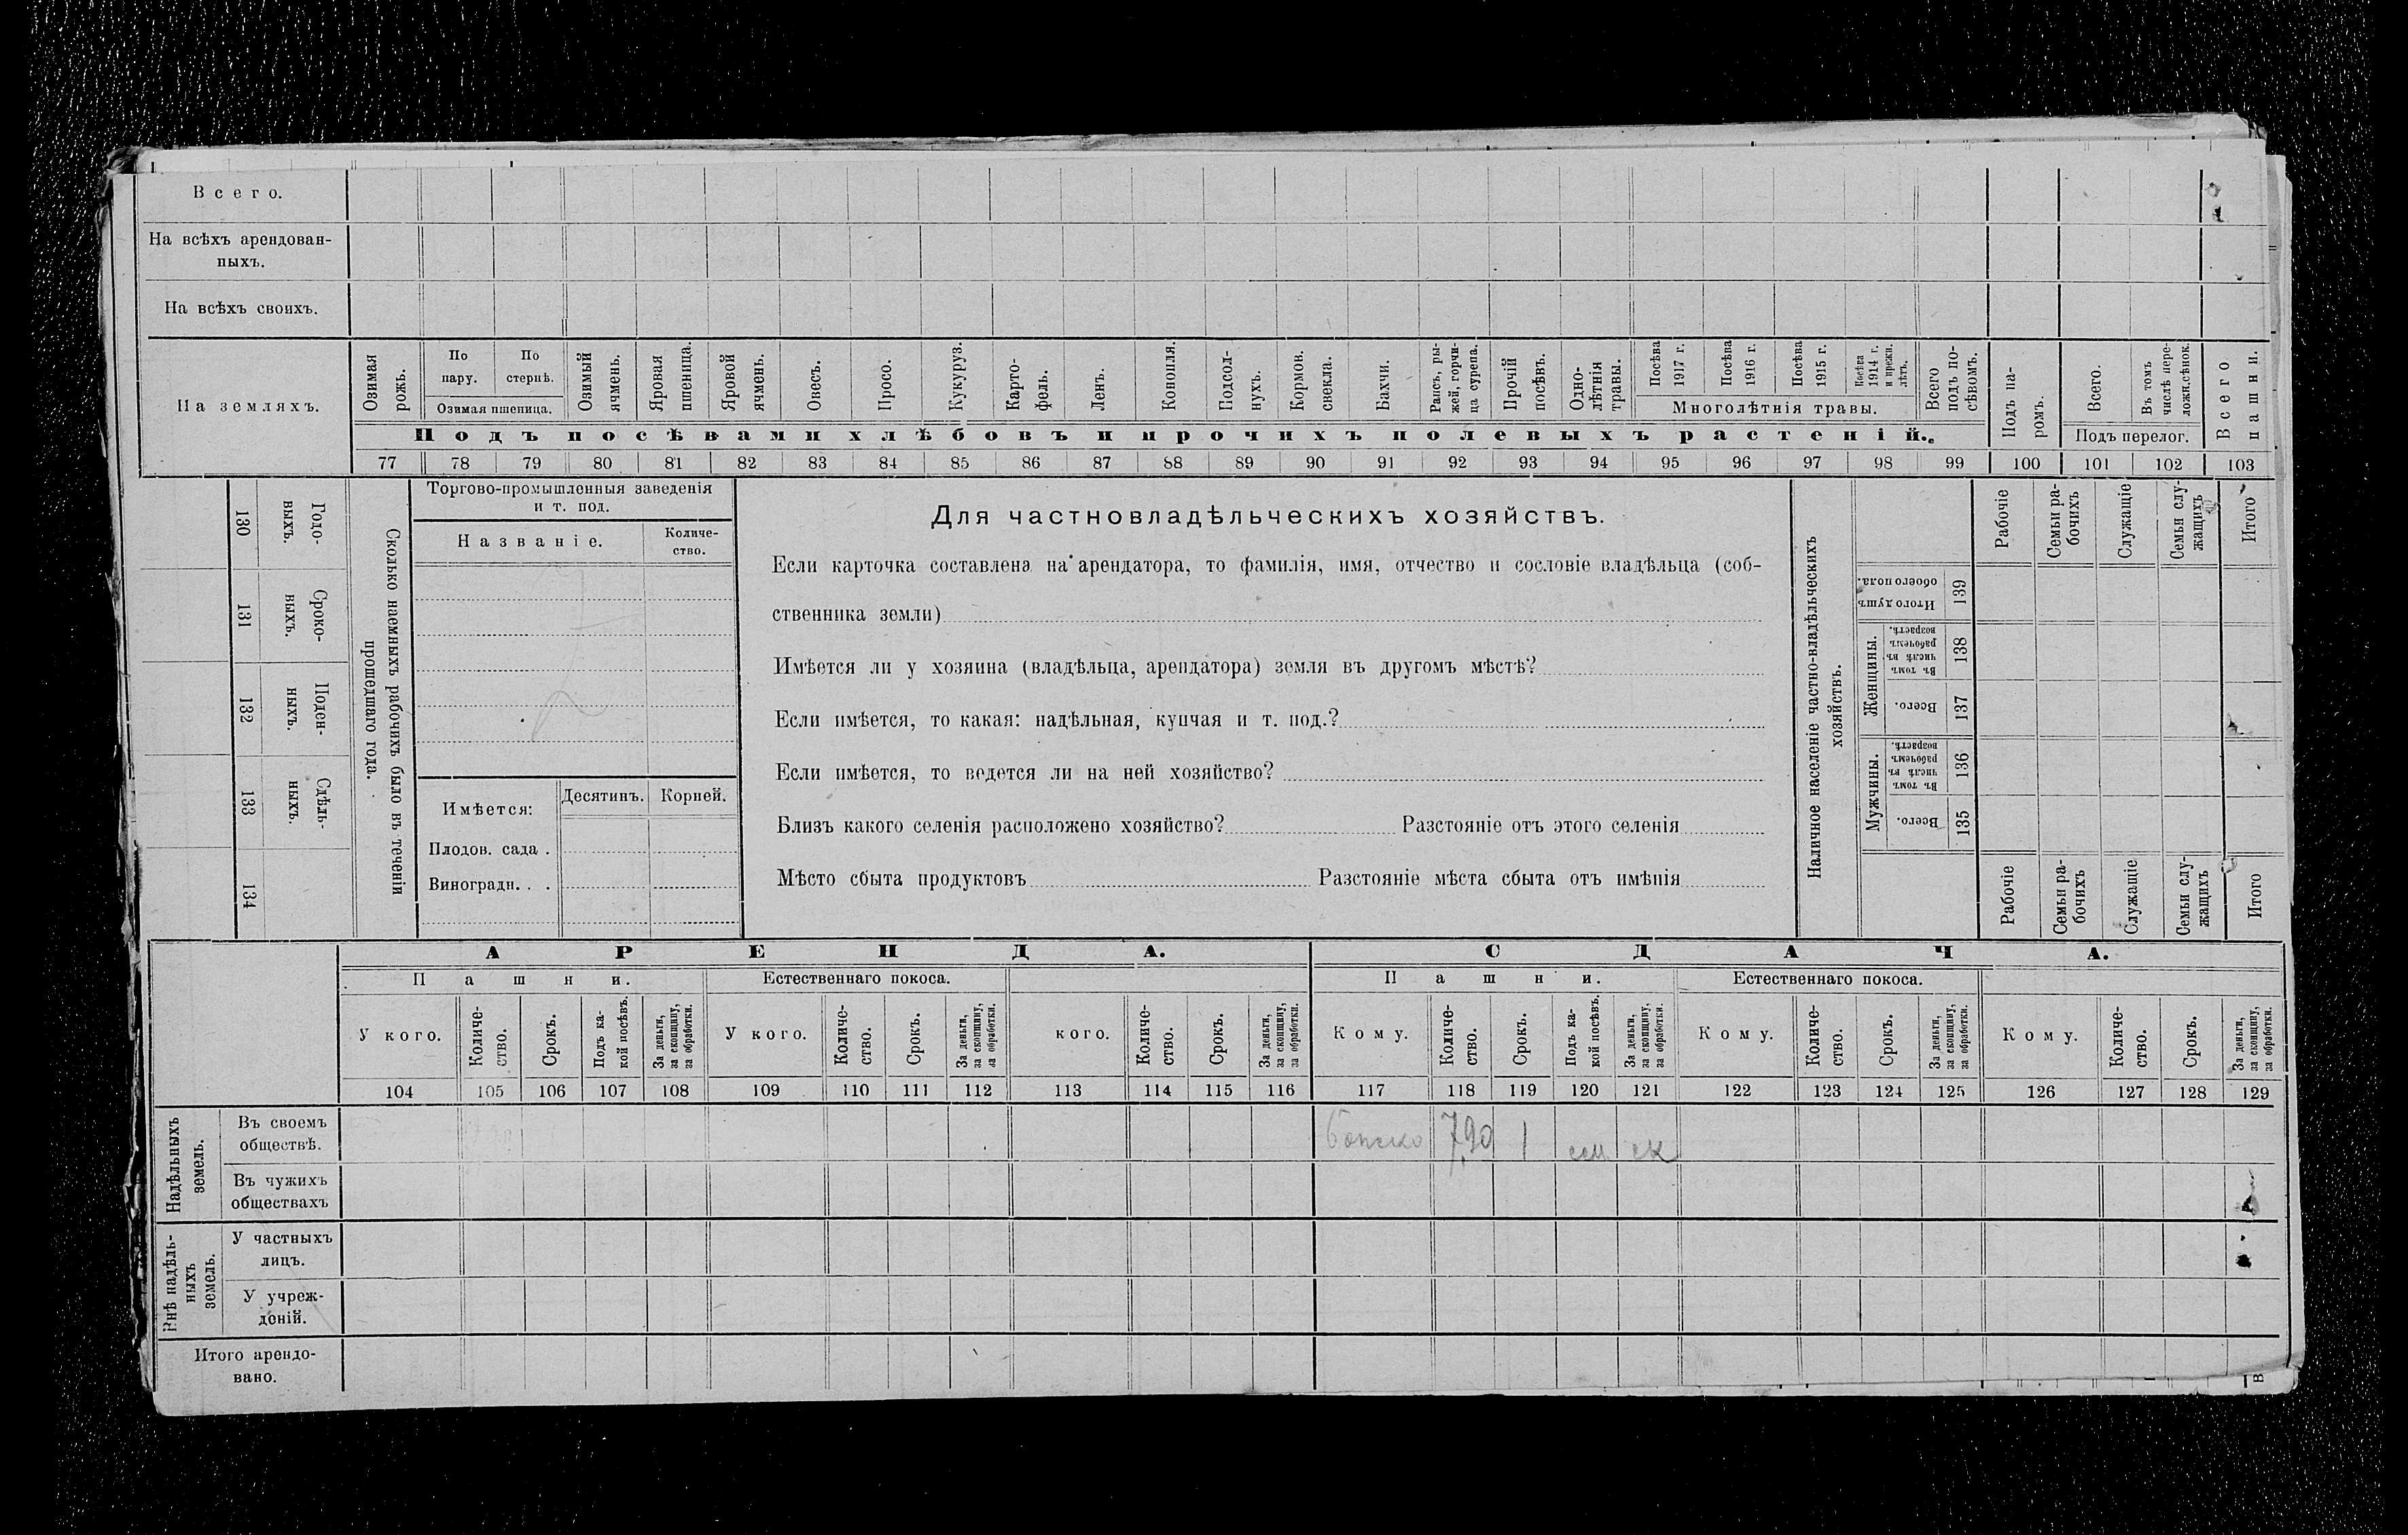 Всего.
На всѣхъ арендован-
ныхъ.
На всѣхъ своихъ.
На земляхъ.
Озимая рожь.
По пару.
По стернѣ.
Озимая пшеница.
Озимый ячмень.
Яровая пшеница.
Яровой ячмень.
Овесъ.
Просо.
Кукуруз.
Карто-
фель.
Ленъ.
Конопля.
Подсол-
нухъ.
Кормов. свекла.
Бахчи.
Рапсъ, ры-
жей, горчи-
ца сурепа.
Прочій посѣвъ.
Одно-
лѣтнія травы.
Посѣва 1917 г.
Посѣва 1916 г.
Посѣва 1915 г.
Посѣва 1914 г. и прежн. лѣтъ.
Многолѣтнія травы.
Всего подъ по-
сѣвомъ.
Подъ па-
ромъ.
Всего.
Въ томъ числѣ пере-
ложн.сѣнок.
Подъ перелог.
Всего пашни.
Подъ посѣвами хлѣбовъ и прочихъ полевыхъ растеній.
77 78 79 80 81 82 83 84 85 86 87 88 89 90 91 92 93 94 95 96 97 98 99 100 101 102 103
130 Годо-
выхъ.
131 Сроко-
выхъ.
132 Поден-
ныхъ.
133 Сдѣль-
ныхъ.
134
Сколько наемныхъ рабочихъ было въ теченіи
прошедшаго года.
Торгово-промышленныя заведенія
и т. под.
Названіе.
Количе-
ство.
Имѣется:
Десятинъ.
Корней.
Плодов. сада .
Виноградн. . .
Для частновладѣльческихъ хозяйствъ.
Если карточка составлена на арендатора, то фамилія, имя, отчество и сословіе владѣльца (соб-
ственника земли)
Имѣется ли у хозяина (владѣльца, арендатора) земля въ другомъ мѣстѣ?
Если имѣется, то какая: надѣльная, купчая и т. под.?
Если имѣется, то ведется ли на ней хозяйство?
Близъ какого селенія расположено хозяйство? Разстояніе отъ этого селенія
Мѣсто сбыта продуктовъ Разстояніе мѣста сбыта отъ имѣнія
Наличное населеніе частно-владѣльческихъ
хозяйствъ.
Рабочіе
Семьи ра-
бочихъ
Служащіе
Семьи слу-
жащихъ
Итого
Итого душъ обоего пола. 139
Женщины.
Въ томъ числѣ въ рабочемъ возрастѣ. 138
Всего. 137
Мужчины.
Въ томъ числѣ въ рабочемъ возрастѣ. 136
Всего. 135
Рабочіе
Семьи ра-
бочихъ
Служащіе
Семьи слу-
жащихъ
Итого
АРЕНДА. СДАЧА.
Пашни. Естественнаго покоса. Пашни. Естественнаго покоса.
У кого.
Количе-
ство.
Срокъ.
Подъ ка-
кой посѣвъ.
За деньги, за скопщину, за обработки.
У кого.
Количе-
ство.
Срокъ.
За деньги, за скопщину, за обработки.
кого.
Количе-
ство.
Срокъ.
За деньги, за скопщину, за обработки.
Кому.
Количе-
ство.
Срокъ.
Подъ ка-
кой посѣвъ.
За деньги, за скопщину, за обработки.
Кому.
Количе-
ство.
Срокъ.
За деньги, за скопщину, за обработки.
Кому.
Количе-
ство.
Срокъ.
За деньги, за скопщину, за обработки.
104 105 106 107 108 109 110 111 112 113 114 115 116 117 118 119 120 121 122 123 124 125 126 127 128 129
Надѣльныхъ
земель.
Въ своемъ
обществѣ.
7,90 1 ск
Въ чужихъ
обществахъ
Внѣ надѣль-
ныхъ
земель.
У частныхъ
лицъ.
У учреж-
деній.
Итого арендо-
вано.